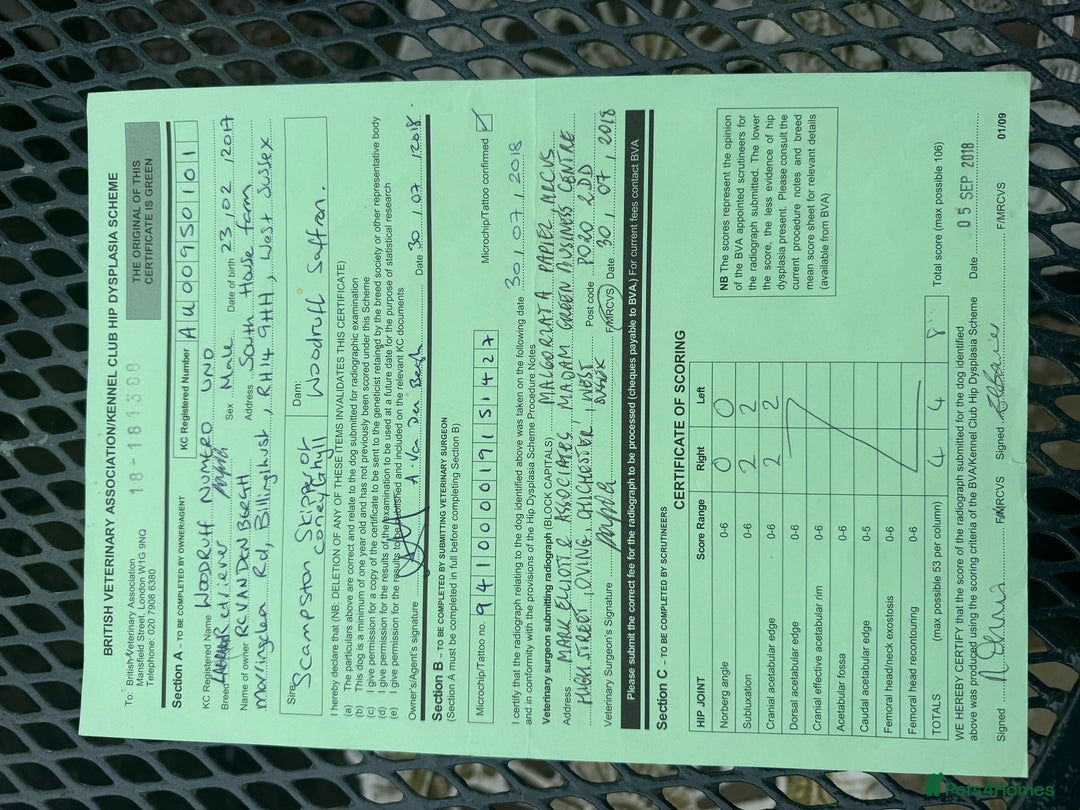 BRITISH VETERINARY ASSOCIATION/KENNEL CLUB HIP DYSPLASIA SCHEME
To: British Veterinary Association
Mansfield Street, London W1G 9NQ
Telephone: 020 7908 6380
18-181308
THE ORIGINAL OF THIS
CERTIFICATE IS GREEN
Section A – TO BE COMPLETED BY OWNER/AGENT
KC Registered Number AU00950101
KC Registered Name WOODRUFF NUMERO UNO
Breed Retriever Sex Male Date of birth 23, 02, 2017
Name of owner RC VAN DEN BERGH Address South House farm
Rd, Billingshurst, RH14 9HH, West Sussex
Sire: Scampston Skipper of
Coneyghyll
Dam: Woodruff Saffron.
I hereby declare that (NB: DELETION OF ANY OF THESE ITEMS INVALIDATES THIS CERTIFICATE)
(a) The particulars above are correct and relate to the dog submitted for radiographic examination
(b) This dog is a minimum of one year old and has not previously been scored under this Scheme
(c) I give permission for a copy of the certificate to be sent to the geneticist retained by the breed society or other representative body
(d) I give permission for the results of the examination to be used at a future date for the purpose of statistical research
(e) I give permission for the results to be published and included on the relevant KC documents
Owner's/Agent's signature A. Van Den Bergh Date 30, 07, 2018
Section B – TO BE COMPLETED BY SUBMITTING VETERINARY SURGEON
(Section A must be completed in full before completing Section B)
Microchip/Tattoo no. 941000019151427 Microchip/Tattoo confirmed ✓
I certify that the radiograph relating to the dog identified above was taken on the following date 30, 07, 2018
and in conformity with the provisions of the Hip Dysplasia Scheme Procedure Notes
Veterinary surgeon submitting radiograph (BLOCK CAPITALS) MALGORZATA PAPIEZ, MRCVS
Address MARK ELLIOTT & ASSOCIATES, MADAM GREEN BUSINESS CENTRE
HIGH STREET, OVING, CHICHESTER, WEST SUSSEX Post code PO20 2DD
Veterinary Surgeon's Signature F/MRCVS Date 30, 07, 2018
Please submit the correct fee for the radiograph to be processed (cheques payable to BVA.) For current fees contact BVA
Section C – TO BE COMPLETED BY SCRUTINEERS
CERTIFICATE OF SCORING
HIP JOINT Score Range Right Left
Norberg angle 0-6 0 0
Subluxation 0-6 2 2
Cranial acetabular edge 0-6 2 2
Dorsal acetabular edge 0-6
Cranial effective acetabular rim 0-6
Acetabular fossa 0-6
Caudal acetabular edge 0-5
Femoral head/neck exostosis 0-6
Femoral head recontouring 0-6
TOTALS (max possible 53 per column) 4 4 8 Total score (max possible 106)
NB The scores represent the opinion
of the BVA appointed scrutineers for
the radiograph submitted. The lower
the score, the less evidence of hip
dysplasia present. Please consult the
current procedure notes and breed
mean score sheet for relevant details
(available from BVA)
WE HEREBY CERTIFY that the score of the radiograph submitted for the dog identified
above was produced using the scoring criteria of the BVA/Kennel Club Hip Dysplasia Scheme
Date 05 SEP 2018
Signed F/MRCVS Signed F/MRCVS 01/09
Pets4Homes